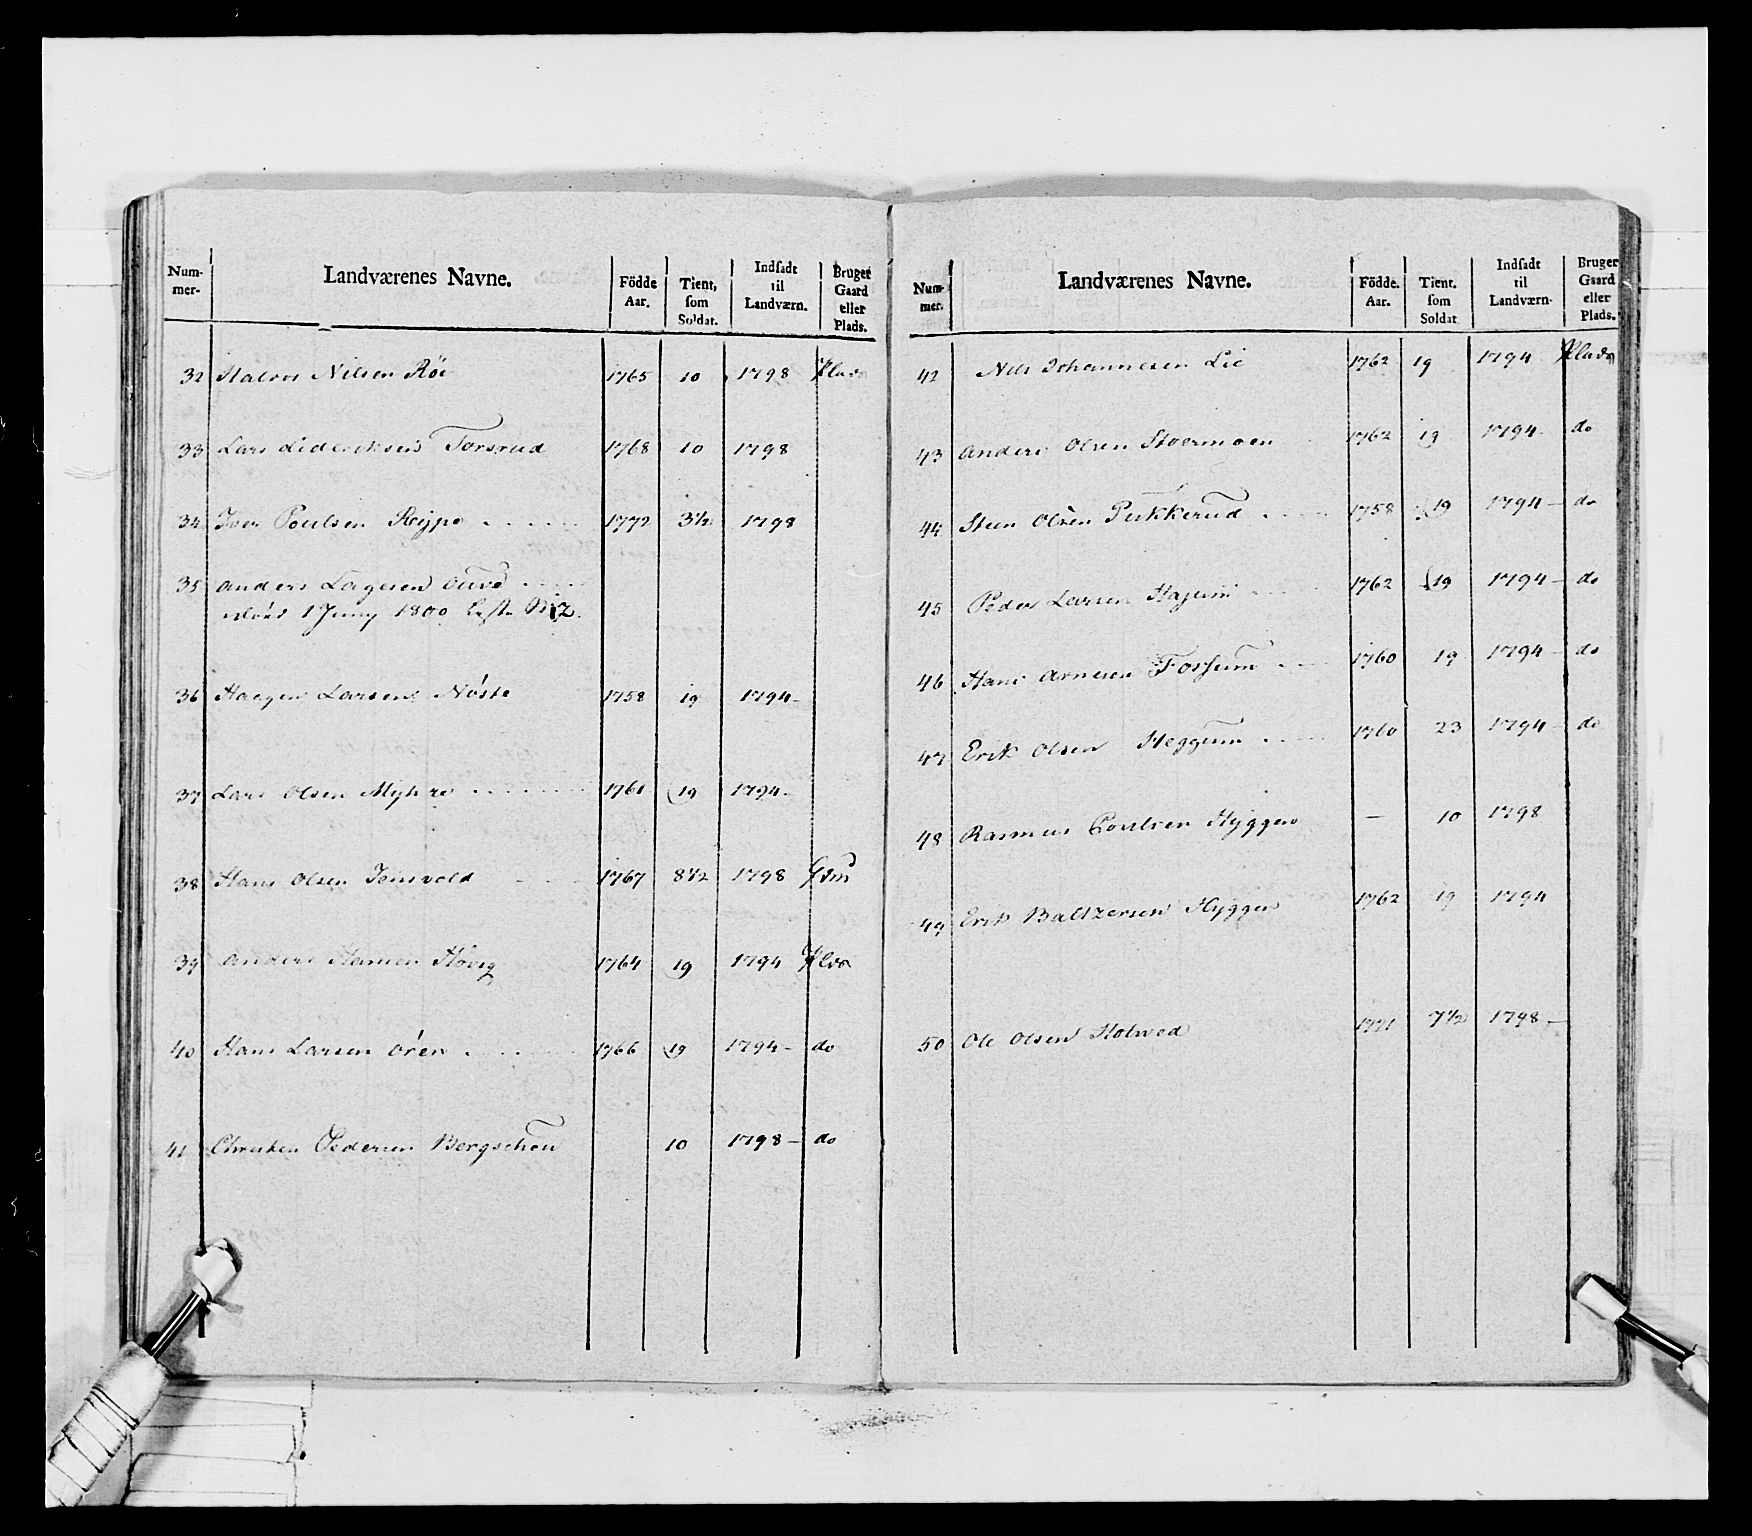 Num-mer- Landværenes Navne. Födde Aar. Tient, som Soldat. Indsadt til Landværn. Bruger Gaard eller Plads.
32 Halvor Nilsen Röe 1765 10 1798 Plads
33 Lars Diderichsen Torsrud 1768 10 1798
34 Iver Poulsen 1772 3½ 1798
35 Anders Lagesen
1 Juny 1800
36 Haagen Larsen Nöste 1758 19 1794-
37 Lars Olsen Myhre 1761 19 1794-
38 Hans Olsen Jensvold 8½ 1798
39 Anders Hansen Hövig 1764 19 1794 Plds
40 Hans Larsen Ören 1766 19 1794- do
41 Christen Pedersen Bergschou 10 1798- do
Num-mer. Landværenes Navne. Födde. Aar. Tient. som Soldat Indsadt til Landværn- Bruger Gaard eller Plads.
42 Nils Johannesen Lie 1762 19 1794 Plads
43 Anders Olsen Stoermoen 1762 19 1794- do
44 Steen Olsen Pukkerud 1758 19 1794- do
45 Peder Larsen 1762 19 1794- do
46 Hans Arnesen Fossum 1760 19 1794- do
47 Erik Olsen Heggum 1760 23 1794- do
48 Rasmus Poulsen Hyggen - 10 1798
49 Erik Baltzersen Hyggen 1762 19 1794
50 Ole Olsen 1771 7½ 1798-